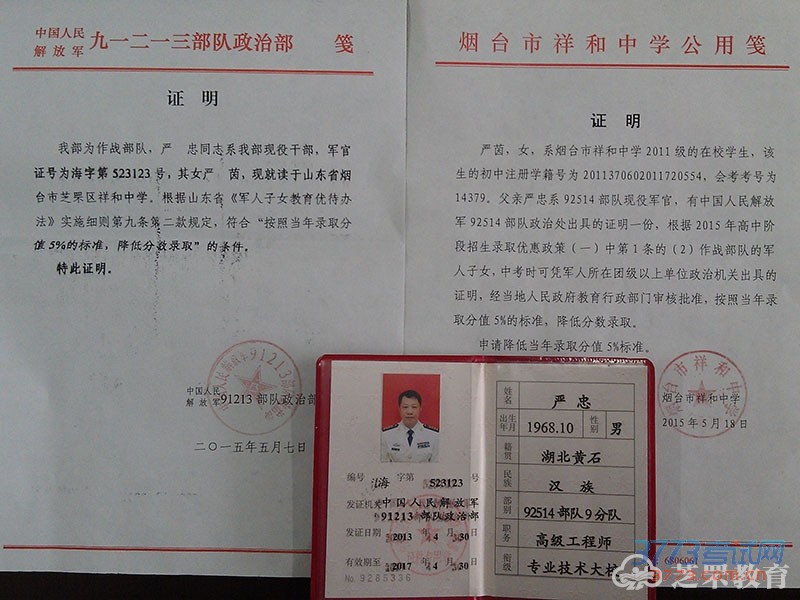 中国人民
解放军 九一二一三部队政治部 笺
证明
我部为作战部队，严 忠同志系我部现役干部，军官
证号为海字第 523123 号，其女严 茵，现就读于山东省烟
台市芝罘区祥和中学。根据山东省《军人子女教育优待办
法》实施细则第九条第二款规定，符合“按照当年录取分
值 5%的标准，降低分数录取”的条件。
特此证明。
中国人民
解放军 91213 部队政治部
二〇一五年五月七日
烟台市祥和中学公用笺
证明
严茵，女，系烟台市祥和中学 2011 级的在校学生，该
生的初中注册学籍号为 2011370602011720554，会考考号为
14379。父亲严忠系 92514 部队现役军官，有中国人民解放
军 92514 部队政治处出具的证明一份，根据 2015 年高中阶
段招生录取优惠政策（一）中第 1 条的（2）作战部队的军
人子女，中考时可凭军人所在团级以上单位政治机关出具的
证明，经当地人民政府教育行政部门审核批准，按照当年录
取分值 5%的标准，降低分数录取。
申请降低当年录取分值 5%标准。
烟台市祥和中学
2015 年 5 月 18 日
编号 海 字第 523123 号
发证机关 中国人民解放军
91213部队政治部
发证日期 2013 年 4 月 30 日
有效期至 2017 年 4 月 30 日
No 9285336
姓名 严忠
出生年月 1968.10 性别 男
籍贯 湖北黄石
民族 汉族
部别 92514 部队 9 分队
职务 高级工程师
衔级 专业技术大校
6806061
7773考试网
芝罘教育